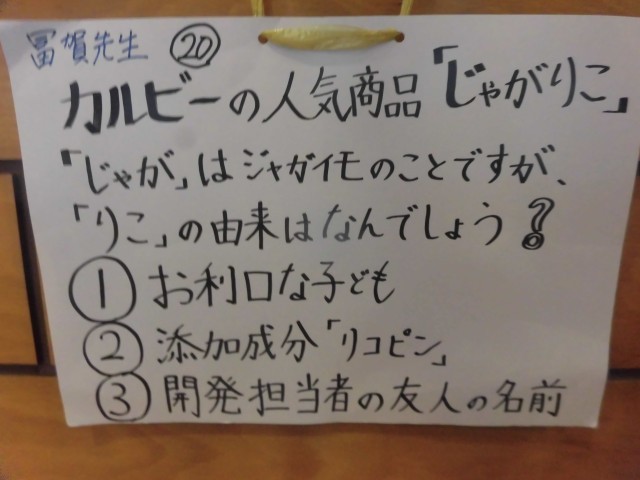 冨賀先生 ⑳
カルビーの人気商品「じゃがりこ」
「じゃが」はジャガイモのことですが、
「りこ」の由来はなんでしょう?
① お利口な子ども
② 添加成分「リコピン」
③ 開発担当者の友人の名前